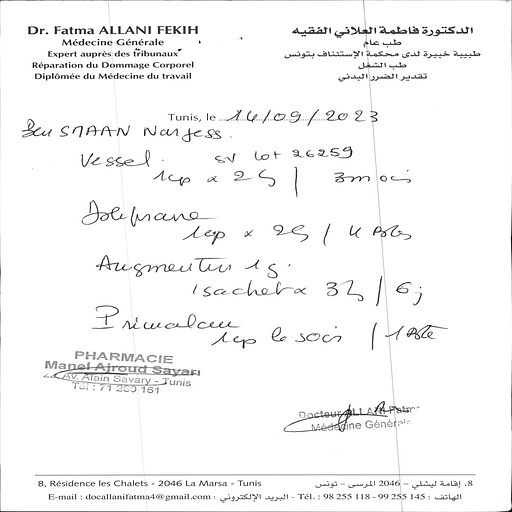 Dr. Fatma ALLANI FEKIH
Médecine Générale
Expert auprès des tribunaux
Réparation du Dommage Corporel
Diplômée du Médecine du travail
الدكتورة فاطمة العلاني الفقيه
طب عام
طبيبة خبيرة لدى محكمة الإستئناف بتونس
طب الشغل
تقدير الضرر البدني
Tunis, le 14/09/2023
Ben SMAAN Nargess.
Vessel. SV lot 26259
1cp x 2/j / 3mois
Doliprane
1cp x 2/j / 4
Augmentin 1g.
1sachet x 3/j / 6j
Primalan
1cp le soir / 1Bte
PHARMACIE
Manel Ajroud Sayari
Av. Alain Savary - Tunis
Tél : 71 280 161
Docteur ALLANI Fatma
Médecine Générale
8, Résidence les Chalets - 2046 La Marsa - Tunis
8. إقامة ليشلي – 2046 المرسى – تونس
E-mail : docallanifatma4@gmail.com : البريد الإلكتروني - Tél. : 98 255 118 - 99 255 145 : الهاتف